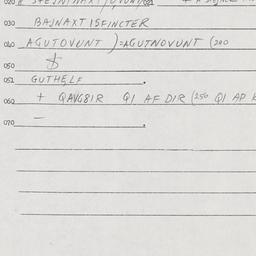 030 BAJNAXT ISFINCTER
040 AGUTOVUNT )=AGUTNOVUNT (200
050 $
051 GUTHELF .
060 + QAVG81R QI AF DIR (250 QI AP
070 — .